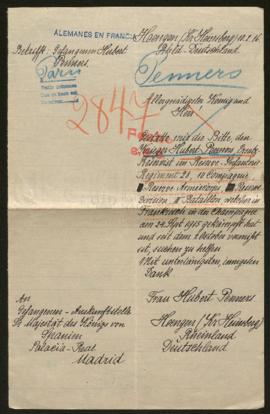 ALEMANES EN FRANCIA
Haengen (Kr. Heinsberg) 10.2.16.
Rhld-Deutschland
Betrifft: Gefangenen Hubert
Penners.
Paris
Penners
Allergnädigster König und
Herr!
2847
Gestatte mir die Bitte, den
Hubert Penners
Reservist im Reserve Infanterie
Regiment 28, 10 Compagnie,
Reserve Armeecorps Reserve
Division, III Bataillon, welcher in
Frankreich in der Champagne
am 24 Sept 1915 gekämpft hat
und seit dem 1 Oktober vermißt
ist, suchen zu lassen
Mit untertänigstem, innigsten
Dank
An
Gefangenen-Auskunftstelle
Sr Majestät des Königs von
Spanien
Palacio-Real
Madrid
Frau Hubert Penners
Haengen (Kr. Heinsberg)
Rheinland
Deutschland